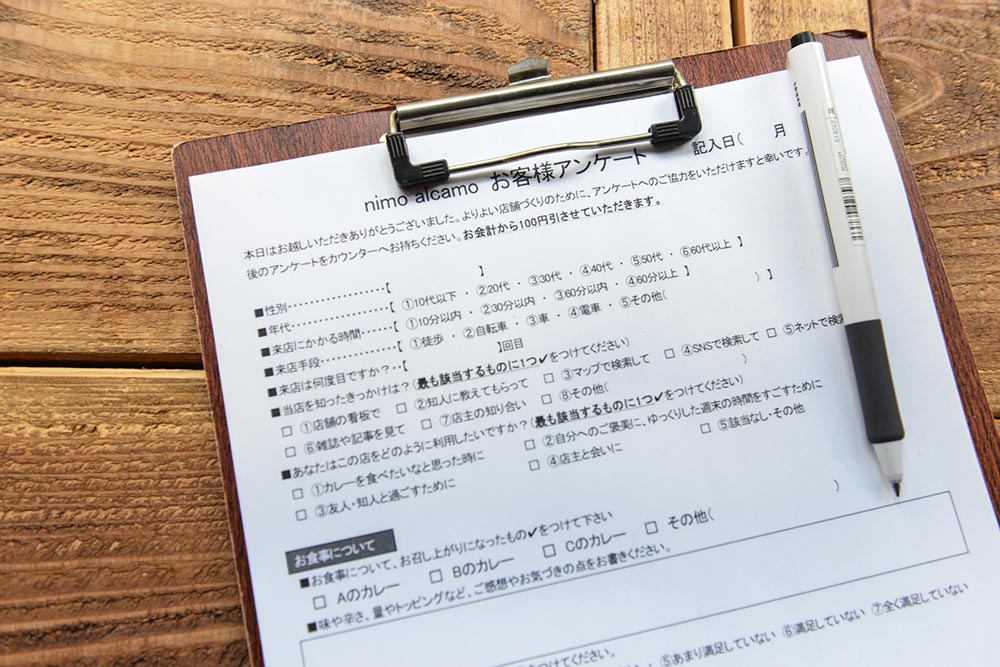 nimo alcamo お客様アンケート 記入日( 月
本日はお越しいただきありがとうございました。よりよい店舗づくりのために、アンケートへのご協力をいただけますと幸いです。
後のアンケートをカウンターへお持ちください。お会計から100円引させていただきます。
■性別・・・・・・・・・・・・・・・・・【 】
■年代・・・・・・・・・・・・・・・・・【 ①10代以下 ・ ②20代 ・ ③30代 ・ ④40代 ・ ⑤50代 ・ ⑥60代以上 】
■来店にかかる時間・・・・・・【 ①10分以内 ・ ②30分以内 ・ ③60分以内 ・ ④60分以上 】
■来店手段・・・・・・・・・・・・・・【 ①徒歩 ・ ②自転車 ・ ③車 ・ ④電車 ・ ⑤その他( ) 】
■来店は何度目ですか？・・【 】回目
■当店を知ったきっかけは？(最も該当するものに1つ✔をつけてください)
□ ①店舗の看板で □ ②知人に教えてもらって □ ③マップで検索して □ ④SNSで検索して □ ⑤ネットで検索
□ ⑥雑誌や記事を見て □ ⑦店主の知り合い □ ⑧その他( )
■あなたはこの店をどのように利用したいですか？(最も該当するものに1つ✔をつけてください)
□ ①カレーを食べたいなと思った時に □ ②自分へのご褒美に、ゆっくりした週末の時間をすごすために
□ ③友人・知人と過ごすために □ ④店主と会いに □ ⑤該当なし・その他
( )
お食事について
■お食事について、お召し上がりになったもの✔をつけて下さい
□ Aのカレー □ Bのカレー □ Cのカレー □ その他(
■味や辛さ、量やトッピングなど、ご感想やお気づきの点をお書きください。
てください。
・ ⑤あまり満足していない ⑥満足していない ⑦全く満足していない